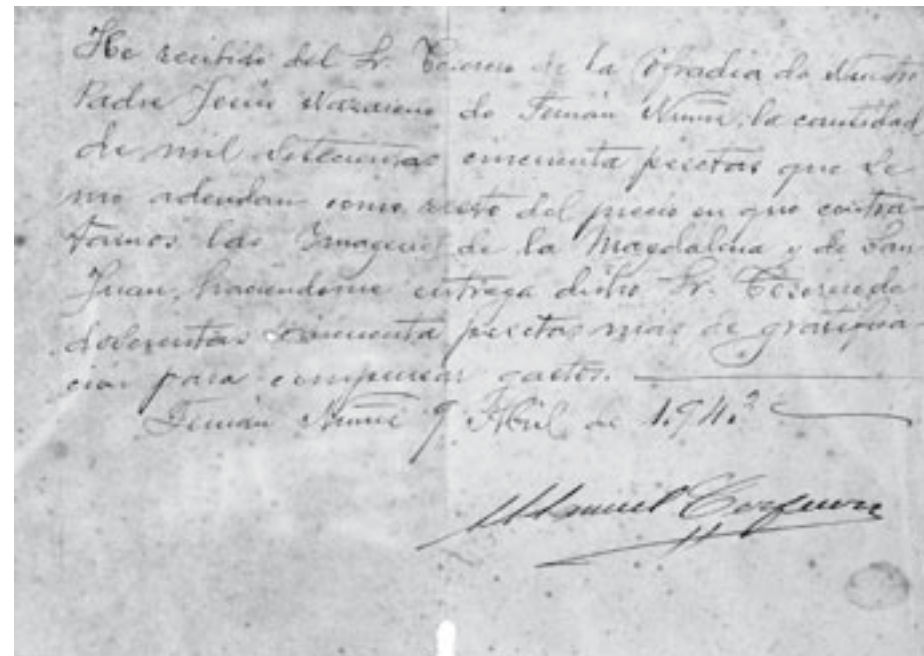 He recibido del Sr. Tesorero de la Cofradia de Nuestro
Padre Jesús Nazareno de Fernán Núñez, la cantidad
de mil setecientas cincuenta pesetas que se
me adeudan como resto del precio en que contra
tamos las Imagenes de la Magdalena y de San
Juan, haciendome entrega dicho Sr. Tesorero de
doscientas cincuenta pesetas más de gratifica
ción para compensar gastos.
Fernán Núñez 9 Abril de
Manuel